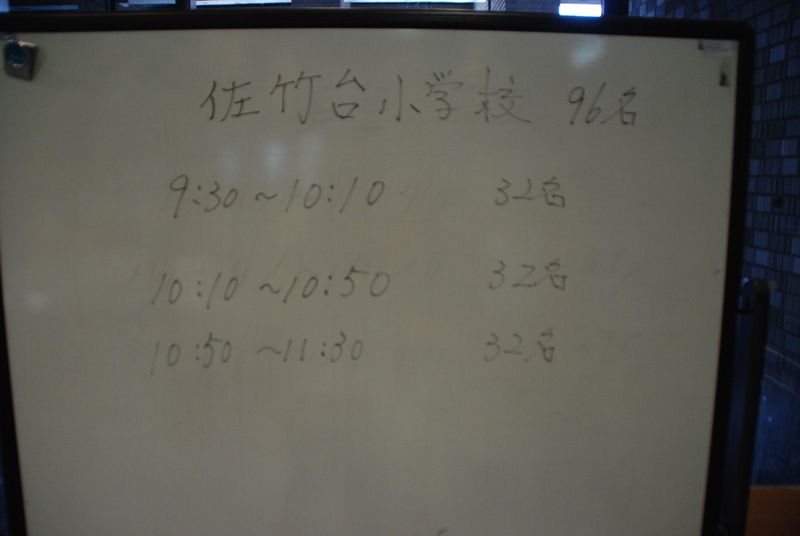 佐竹台小学校 96名
9:30~10:10 32名
10:10~10:50 32名
10:50~11:30 32名